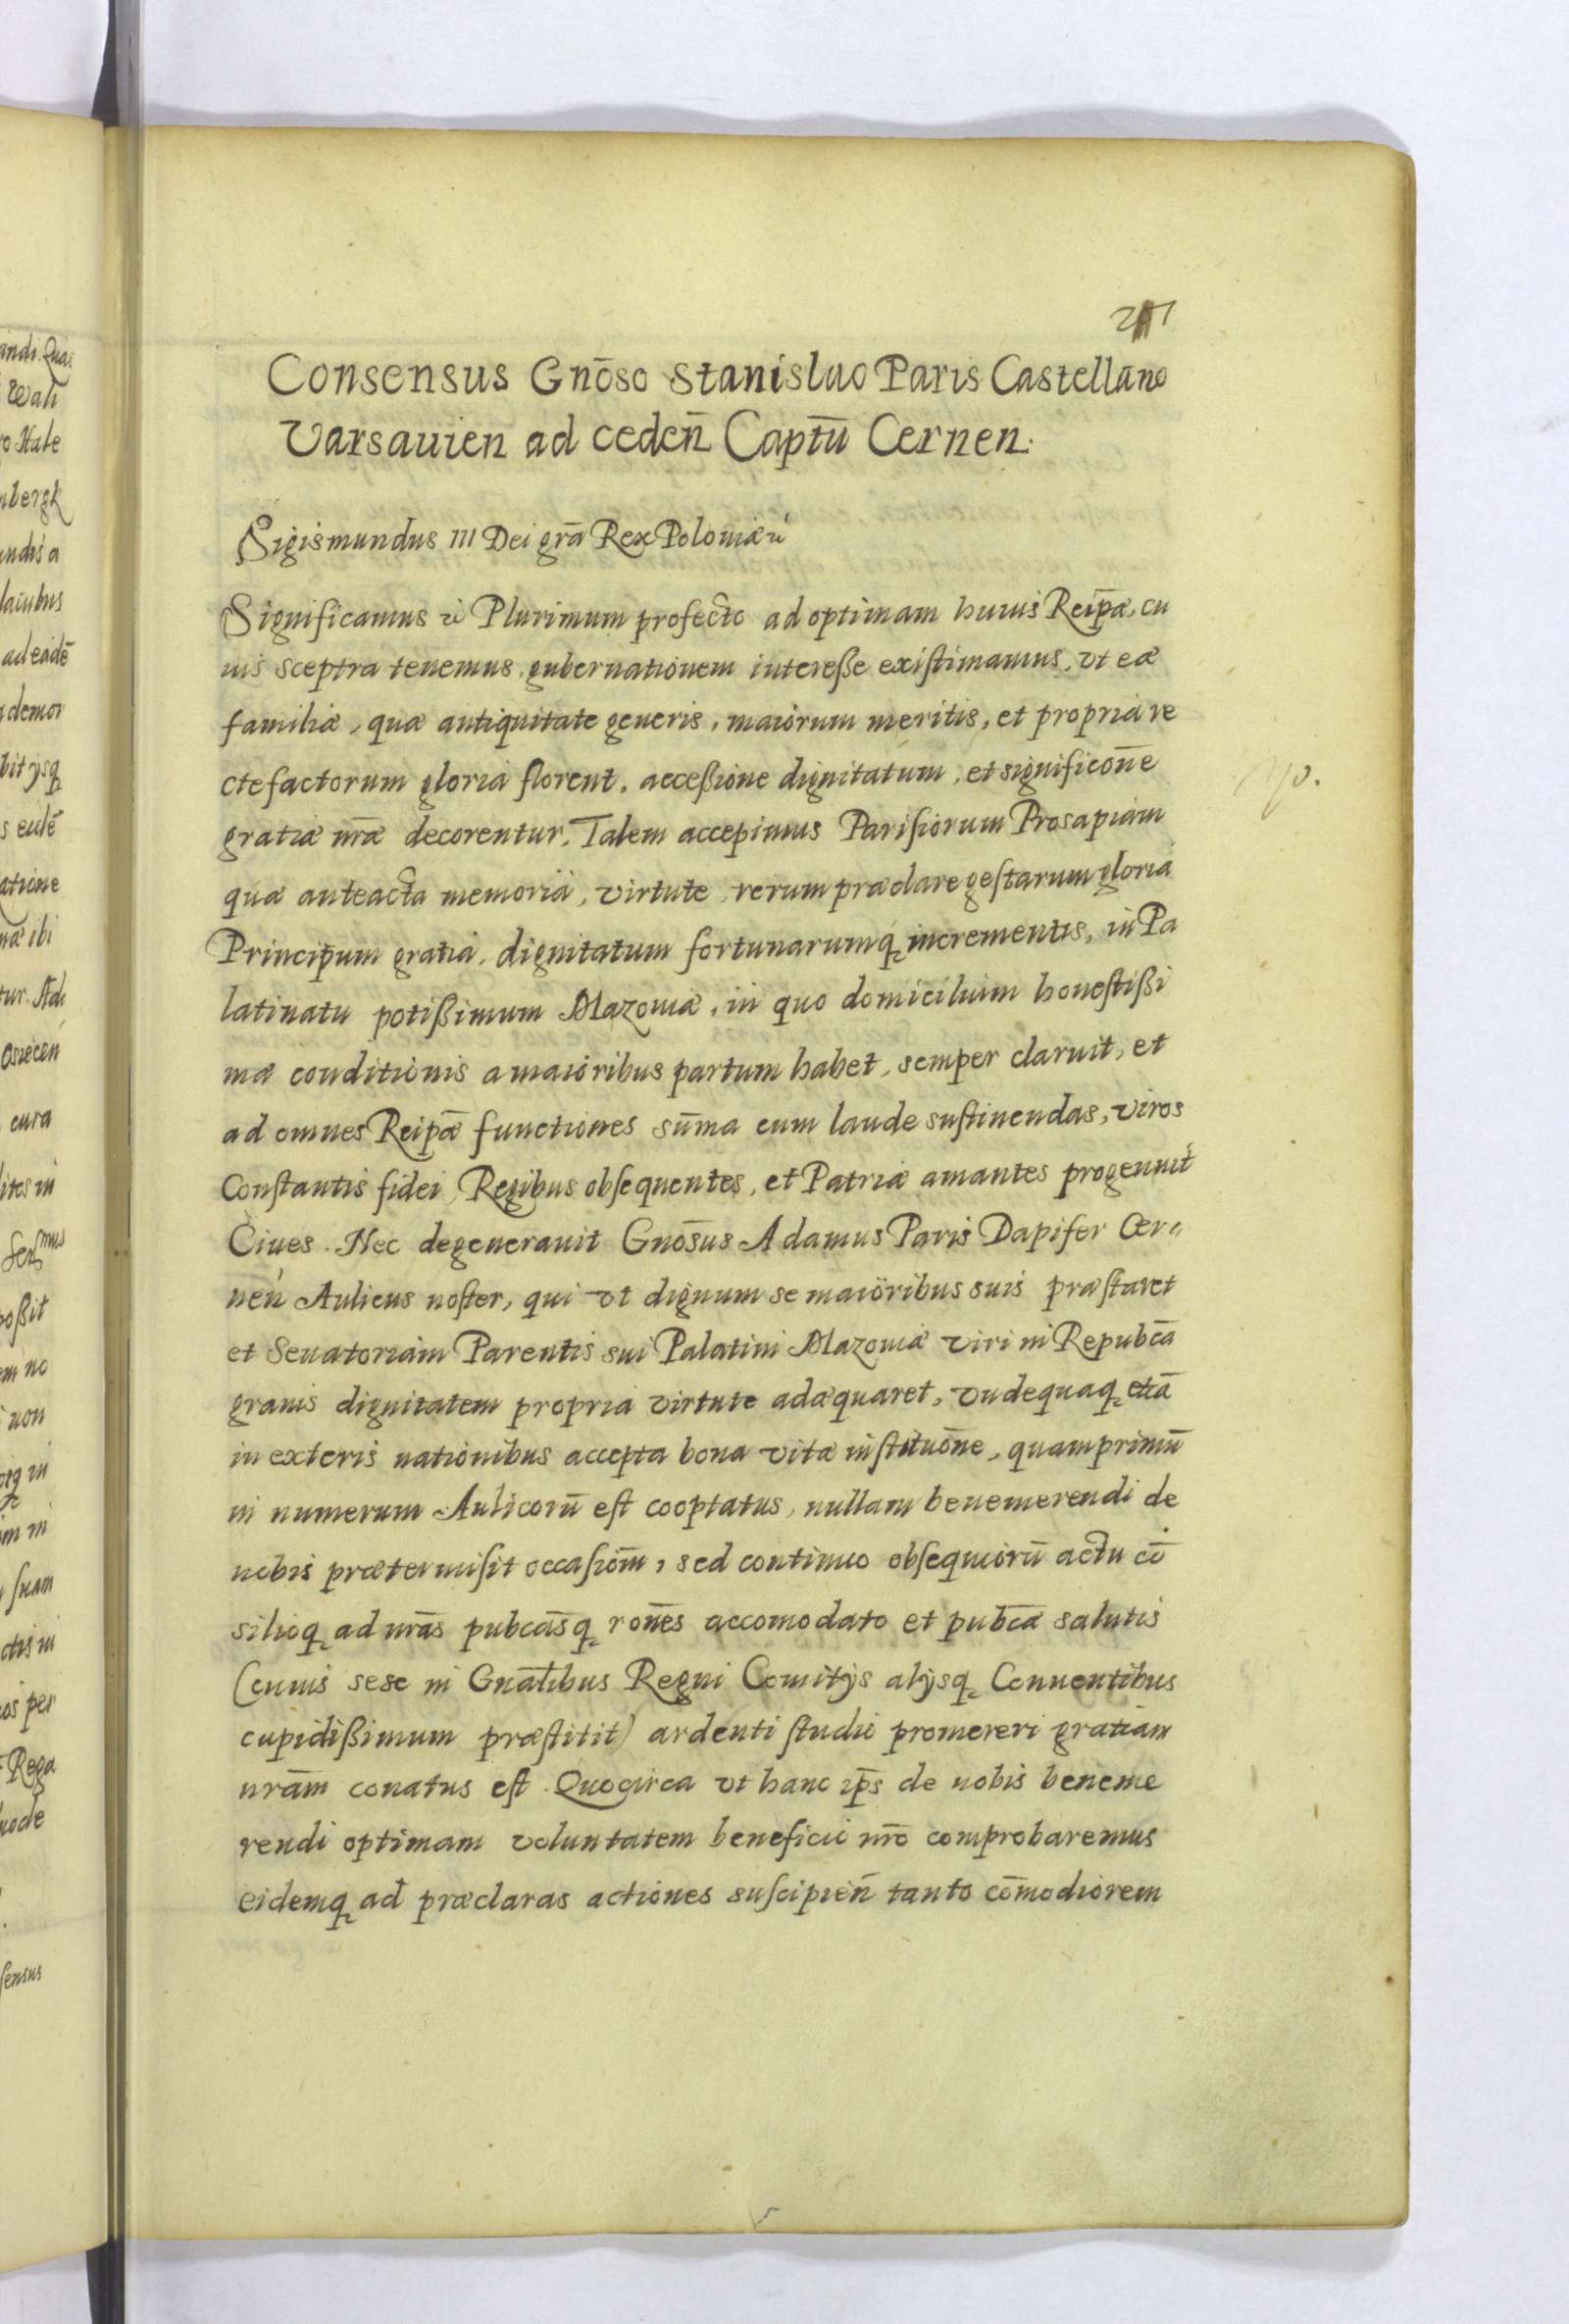 Consensus Gnōso Stanislao Paris Castellano
Varsauien ad cedeñ Captū Cernen.
Sigismundus III Dei grā Rex Poloniæ &
Significamus & Plurimum profecto ad optimam huius Reipæ, cu
ius sceptra tenemus, gubernationem interesse existimamus, vt eæ
familiæ, quæ antiquitate generis, maiorum meritis, et propria re
ctefactorum gloria florent, accessione dignitatum, et significoñe
gratiæ nr̃æ decorentur. Talem accepimus Parisiorum Prosapiam
quæ anteacta memoria, virtute, rerum præclare gestarum gloria
Principum gratia, dignitatum fortunarumq́ incrementis, in Pa
latinatu potissimum Mazouiæ, in quo domicilium honestissi
mæ conditionis a maioribus partum habet, semper claruit, et
ad omnes Reipæ functiones sūma cum laude sustinendas, viros
Constantis fidei, Regibus obsequentes, et Patriæ amantes progenuit
Ciues. Nec degenerauit Gnōsus Adamus Paris Dapifer Cer„
neń Aulicus noster, qui vt dignum se maioribus suis præstaret
et Senatoriam Parentis sui Palatini Mazouiæ viri in Repubcā
grauis dignitatem propria virtute adæquaret, vndequaq, etiā
in exteris nationibus accepta bona vitæ instituōne, quamprimū
in numerum Aulicorū est cooptatus, nullam benemerendi de
nobis prætermisit occasiom̄, sed continuo obsequiorū actu cō
silioq, ad nrās pubcāsq, ronēs accomodato et pubcæ salutis
(cuius sese in Gnālibus Regni Comitÿs alÿsq, Conuentibus
cupidissimum præstitit) ardenti studio promereri gratiam
nrām conatus est. Quocirca vt hanc ip̄s de nobis beneme
rendi optimam voluntatem beneficio nrō comprobaremus
eidemq, ad præclaras actiones suscipień tanto cōmodiorem